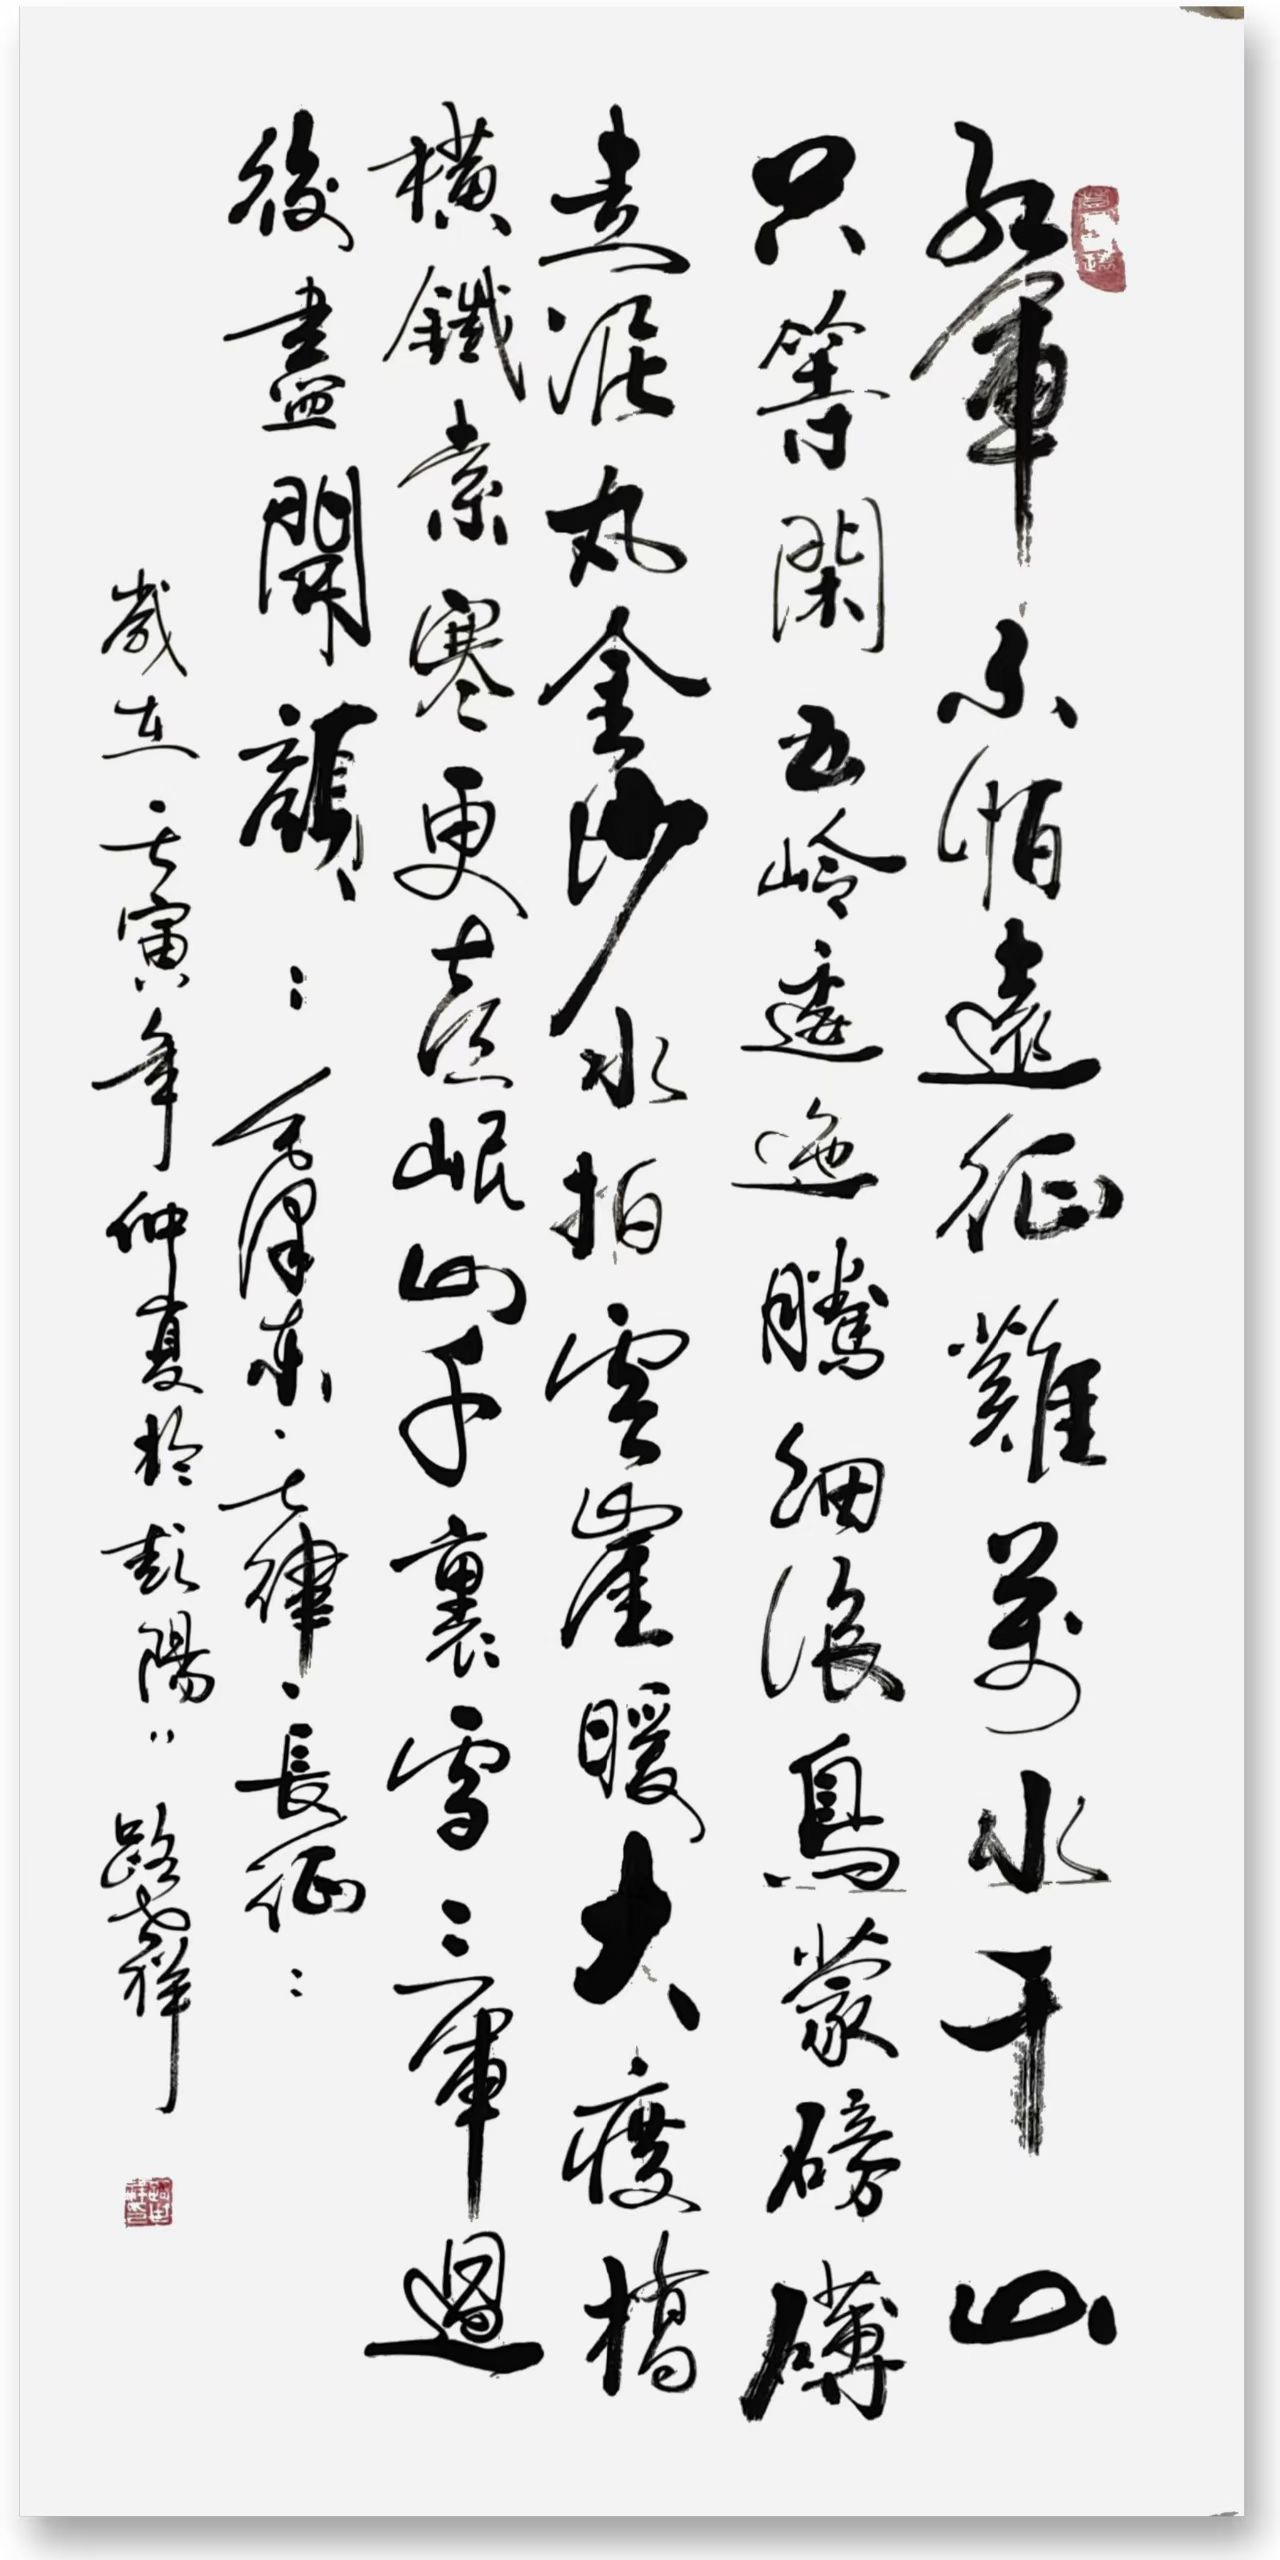 紅軍不怕遠征難萬水千山
只等閑五嶺逶迤騰細浪烏蒙磅礴
走泥丸金沙水拍雲崖暖大渡橋
橫鐵索寒更喜岷山千裏雪三軍過
後盡開顏：毛澤東·七律·長征：
歲在壬寅年仲夏於彭陽〃路祥